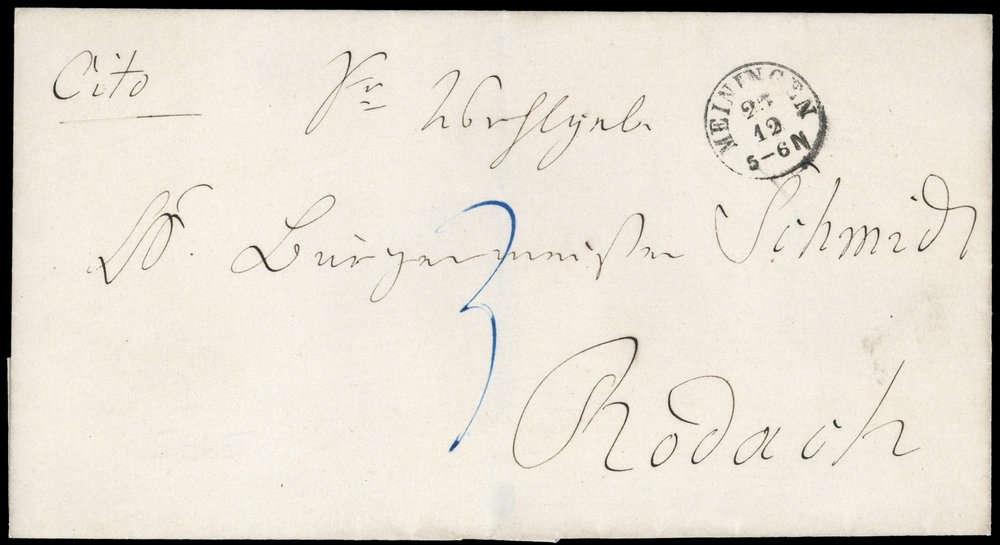 Cito
Sr Wohlgeb.
MEININGEN
12
5-6 N
H. Bürgermeister Schmidt
3
Rodach